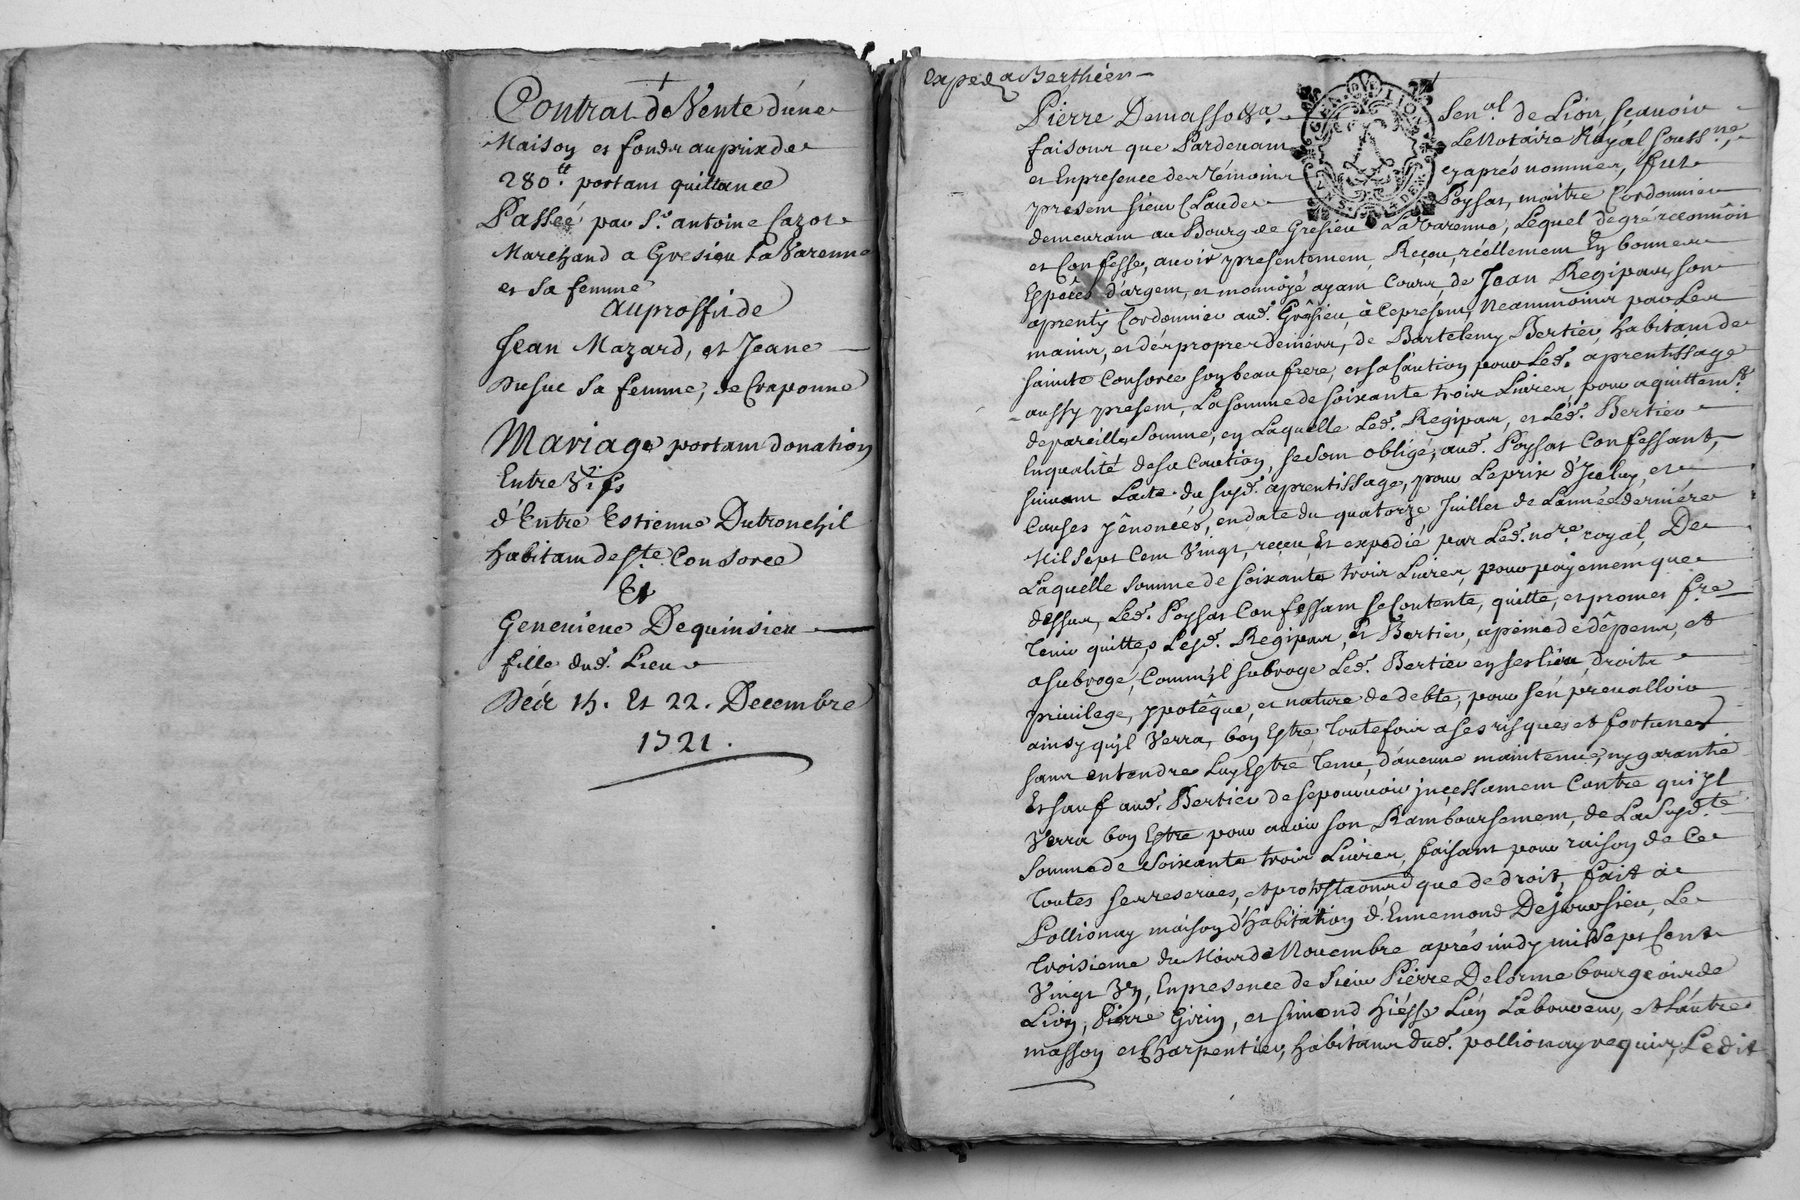 Contrat de Vente d'une
Maison et fonds au prix de
280 ₶. portant quittance
Passeé par Sr. antoine Cazot
Marchand a Gresieu La Varenne
et Sa femme
au proffit de
Jean Mazard, et Jeane
Dusuc Sa femme, de Craponne
Mariage portant donation
Entre Vifs
d'Entre Estienne Dutronchil
habitant de Ste. Consorce
Et
Genevieve Dequinsieu
fille dud. Lieu
Des 15. Et 22. Decembre
1721.
exped a Berthier
Pierre Demasso &a. Sen.al de Lion sçavoir
faisons que Pardevant Le Notaire Royal souss.né,
et En presence des Témoins cy aprés nommes, fut
present sieur Claude Poysat, maitre Cordonnier
demeurant au Bourg de Gresieu La Varenne, Lequel de gré reconnoit
et Confesse, avoir presentement, Reçeu, réellement En bonnes
Especes d'argent, et monnoyé ayant Cours de Jean Regipas, son
aprentif Cordonnier aud. Gresieu à ce present, Neanmoins par Les
mains, et des propres deniers, de Bartelemy Bertier, habitant de
sainte Consorce son beau frere, et sa Caution pour Led. aprentissage
aussy present, La somme de soixante trois Livres, pour aquittemt.
de pareille Somme, en Laquelle Led. Regipas, et Led. Bertier
En qualité de sa Caution, se sont obligé, aud. Poysat Confessant,
suivant L'acte du susd. aprentissage, pour Le prix d'Iceluy, et
Causes y énoncées, en date du quatorze Juillet de L'année derniére
Mil Sept Cent Vingt, reçeu Et expedié par Led. nore. royal, De
Laquelle somme de soixante trois Livres, pour payement que
dessus, Led. Poysat Confessant se Contente, quitte, et promet fre
Tenir quittes Lesd. Regipas, et Bertier, a peine de dépens, et
a subrogé, Comm'jl subroge Led. Bertier en ses lieu, droits
privilege, ypotéque, et nature de debte, pour s'en prevalloir
ainsy qu'jl Verra, bon Estre, Toutefois a ses risques et fortunes
sans entendre Luy Estre Tenu, d'aucune maintenüe, ny garantie
Et sauf aud. Bertier de se pouvoir jncessament Contre qui jl
Verra bon Estre pour avoir son Ramboursement, de La Susdte.
Somme de Soixante trois Livres, faisant pour raison de Ce
Toutes ses reserves, et protestaōns que de droit, fait a
Pollionay maison d'habitation d'Ennemond Dejoursieu, Le
Troisieme du Mois de Novembre aprés midy mil Sept Cent
Vingt Vn, En presence de sieur Pierre Delorme bourgeois de
Lion, Pierre Girin, et simond L'un Laboureur, et L'autre
masson et Charpentier, habitans dud. pollionay requis, Ledit